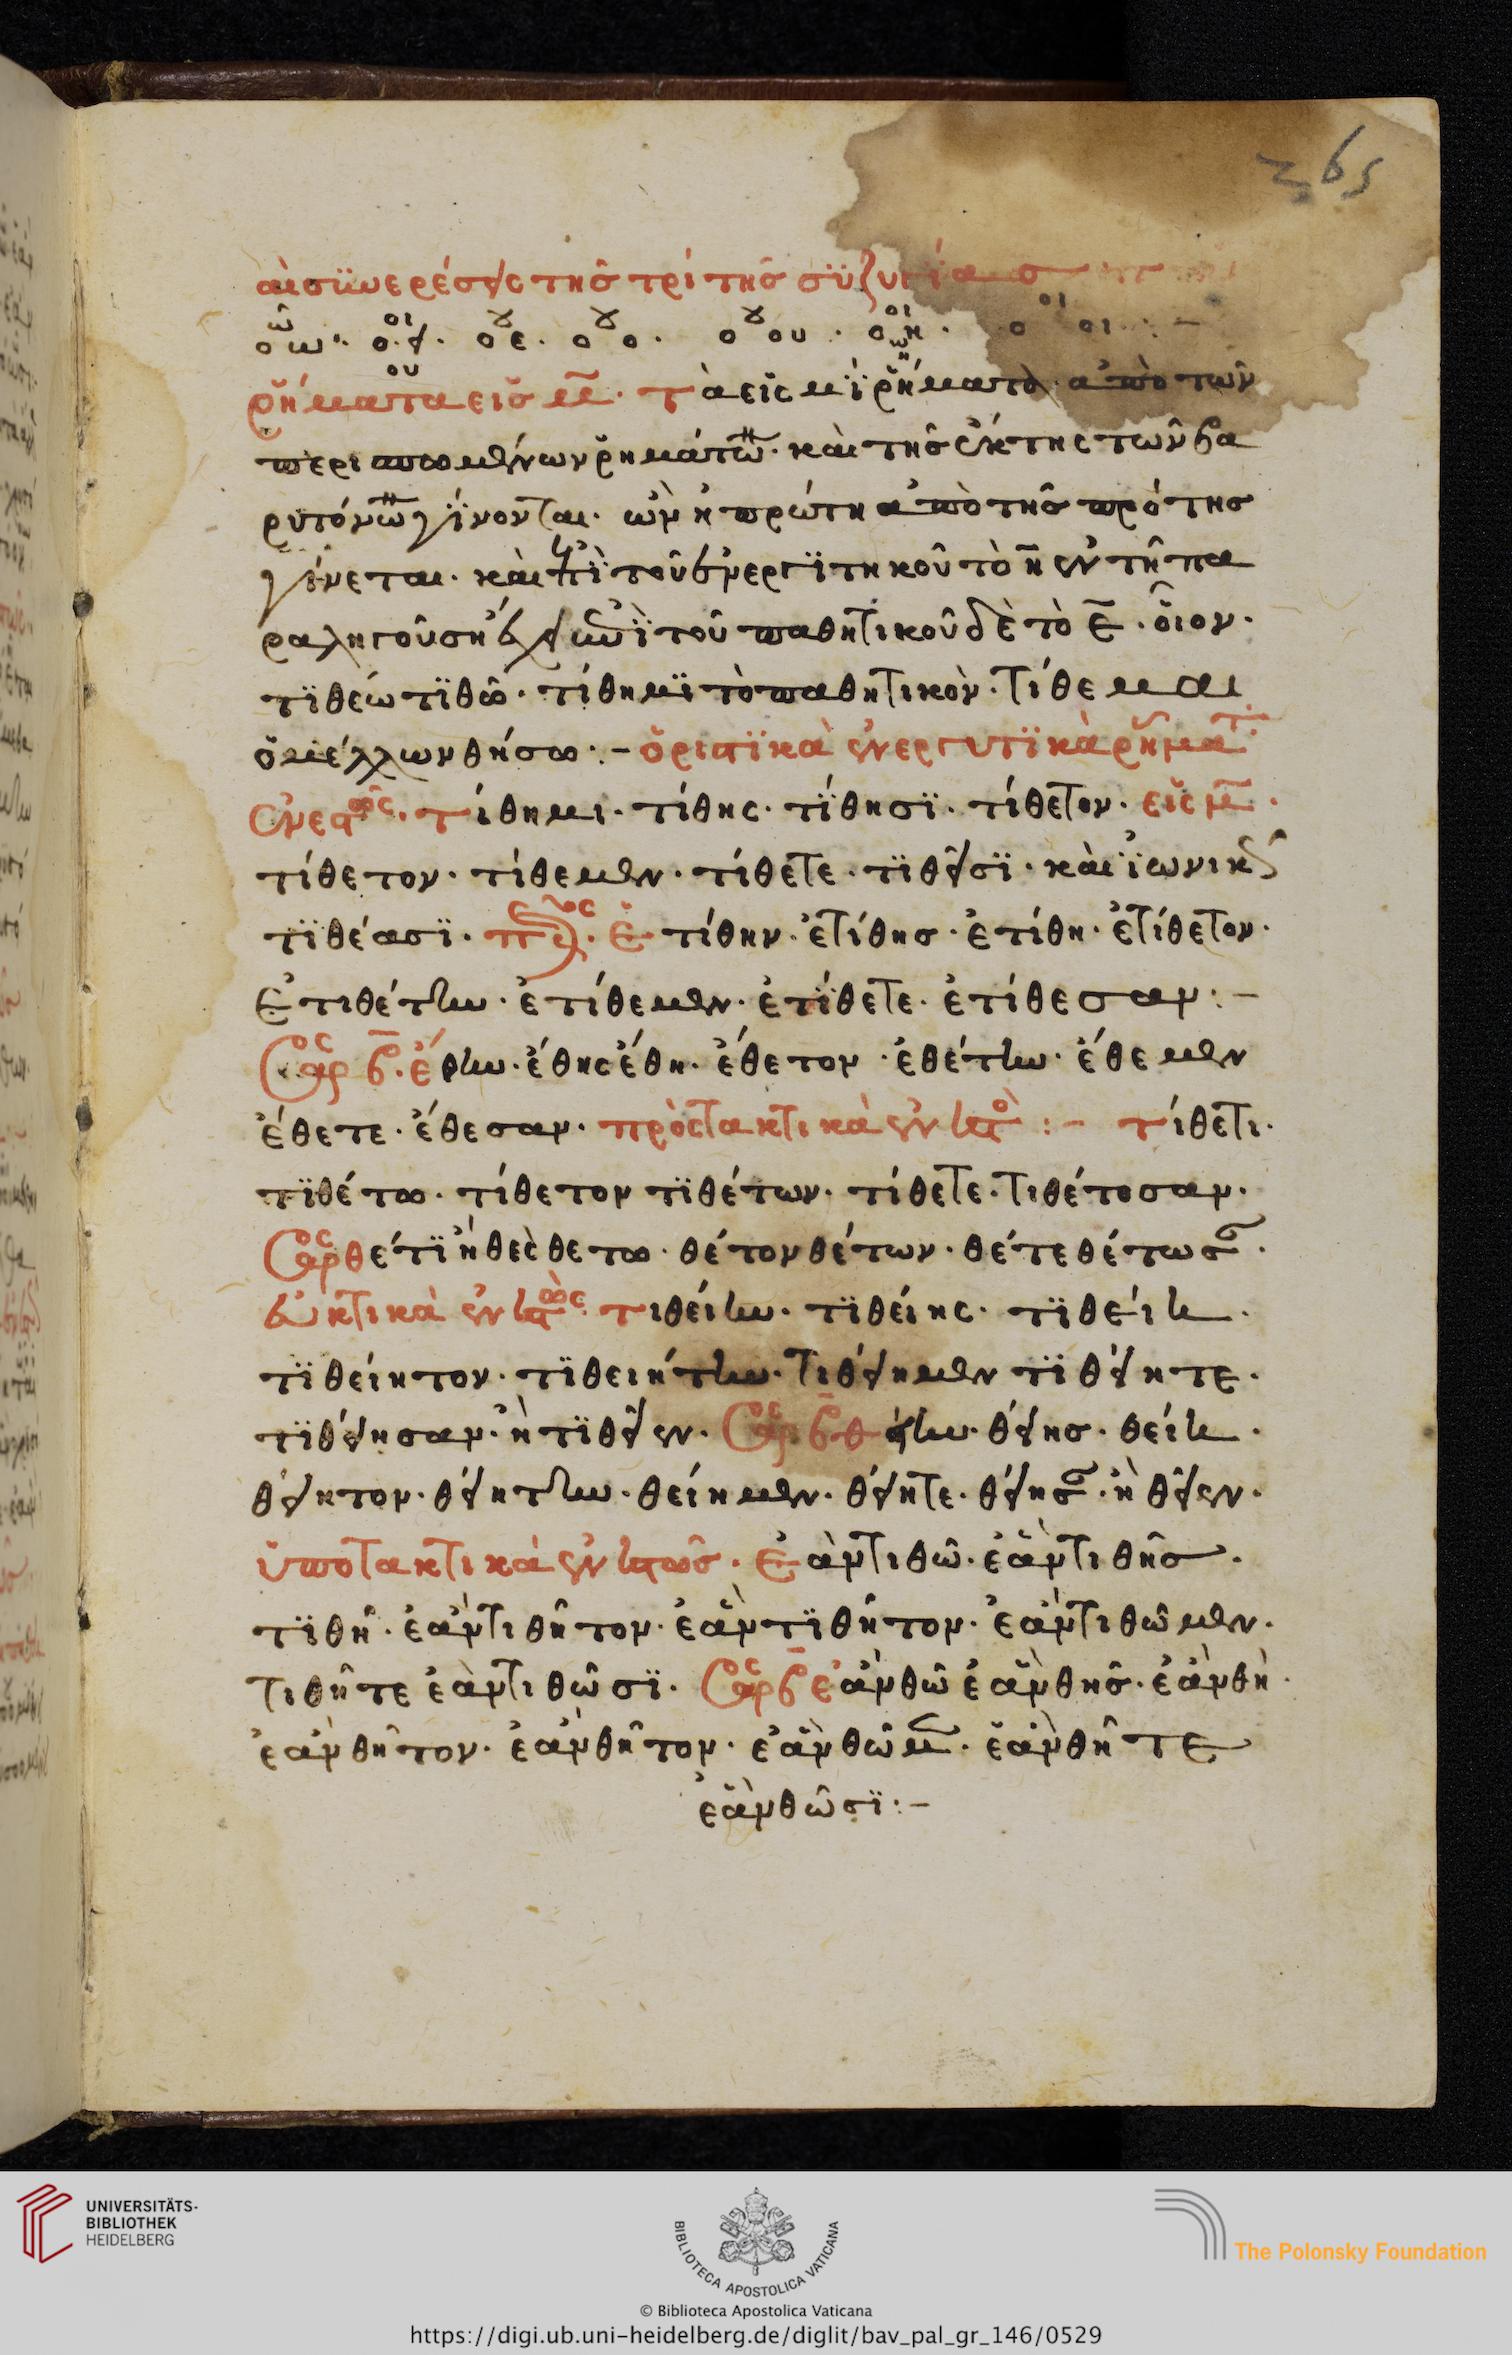 265
αἱ συνερέσεις τῆς τρίτης συζυγίας
οω· οει· οε· οο· οου· οη· οοι :–
ῥήματα εἰς μι. τὰ εἰς μϊ ῥήματα ἀπὸ τῶν
περισπομένων ῥημάτων· καὶ τῆς ἕκτης τῶν βα
ρυτόνων γίνονται· ὧν ἡ πρώτη ἀπὸ τῆς πρότης
γίνεται· καὶ ἐπὶ τοῦ ἐνεργϊτηκοῦ τὸ η ἐν τῆ πα
ραληγοῦση ἔχει ἐπῒ τοῦ παθητικοῦ δὲ τὸ ε· οἷον·
τϊθέω τϊθῶ· τίθημϊ τὸ παθητικὸν· τίθεμαι
ὁ μέλλων θήσω :– ὁριστϊκὰ ἐνεργυτϊκὰ ῥήματ
ἐνεστῶς· τίθημι· τίθης· τΐθησϊ· τίθετον· εἰς μι·
τίθετον· τίθεμεν· τίθετε· τϊθεῖσϊ· καὶ ἰωνικῶς
τϊθέασϊ· ἐτίθην· ἐτίθης· ἐτίθη· ἐτίθετον·
ἐτιθέτην· ἐτίθεμεν· ἐτΐθετε· ἐτίθεσαν :–
ἀόρ β· ἔθην· ἔθης ἔθη· ἔθετον· ἐθέτην· ἔθεμεν
ἔθετε· ἔθεσαν· πρὸστακτικὰ ἐνεστ :– τίθετι·
τϊθέτω· τίθετον τϊθέτων· τίθετε· τιθέτοσαν·
ἀόρ θέτϊ ἢ θεὲς θετω· θέτον θέτων· θέτε θέτωσ·
εὐκτικὰ ἐνεστὼς· τιθείην· τϊθείης· τϊθείη·
τϊθείητον· τϊθειήτην· τιθείημεν τϊθείητε·
τϊθείησαν· ἢ τϊθεῖεν· ἀόρ β θείην· θείης· θείη·
θείητον· θειήτην· θείημεν· θείητε· θείησ· ἢ θεῖεν·
ὑποτακτικὰ ἐνεστῶς· ἐὰν τιθῶ· ἐὰν τιθῆς·
τϊθῆ· ἐὰν τιθῆτον· ἐὰν τϊθῆτον· ἐὰν τιθῶμεν·
τιθῆτε ἐὰν τιθῶσϊ· ἀόρ β ἐὰν θῶ ἐὰν θῆς· ἐὰν θὴ·
ἐὰν θῆτον· ἐὰν θῆτον· ἐὰν θῶμ· ἐὰν θῆτε
ἐὰν θῶσϊ :–
UNIVERSITÄTS-
BIBLIOTHEK
HEIDELBERG
BIBLIOTECA APOSTOLICA VATICANA
The Polonsky Foundation
© Biblioteca Apostolica Vaticana
https://digi.ub.uni-heidelberg.de/diglit/bav_pal_gr_146/0529